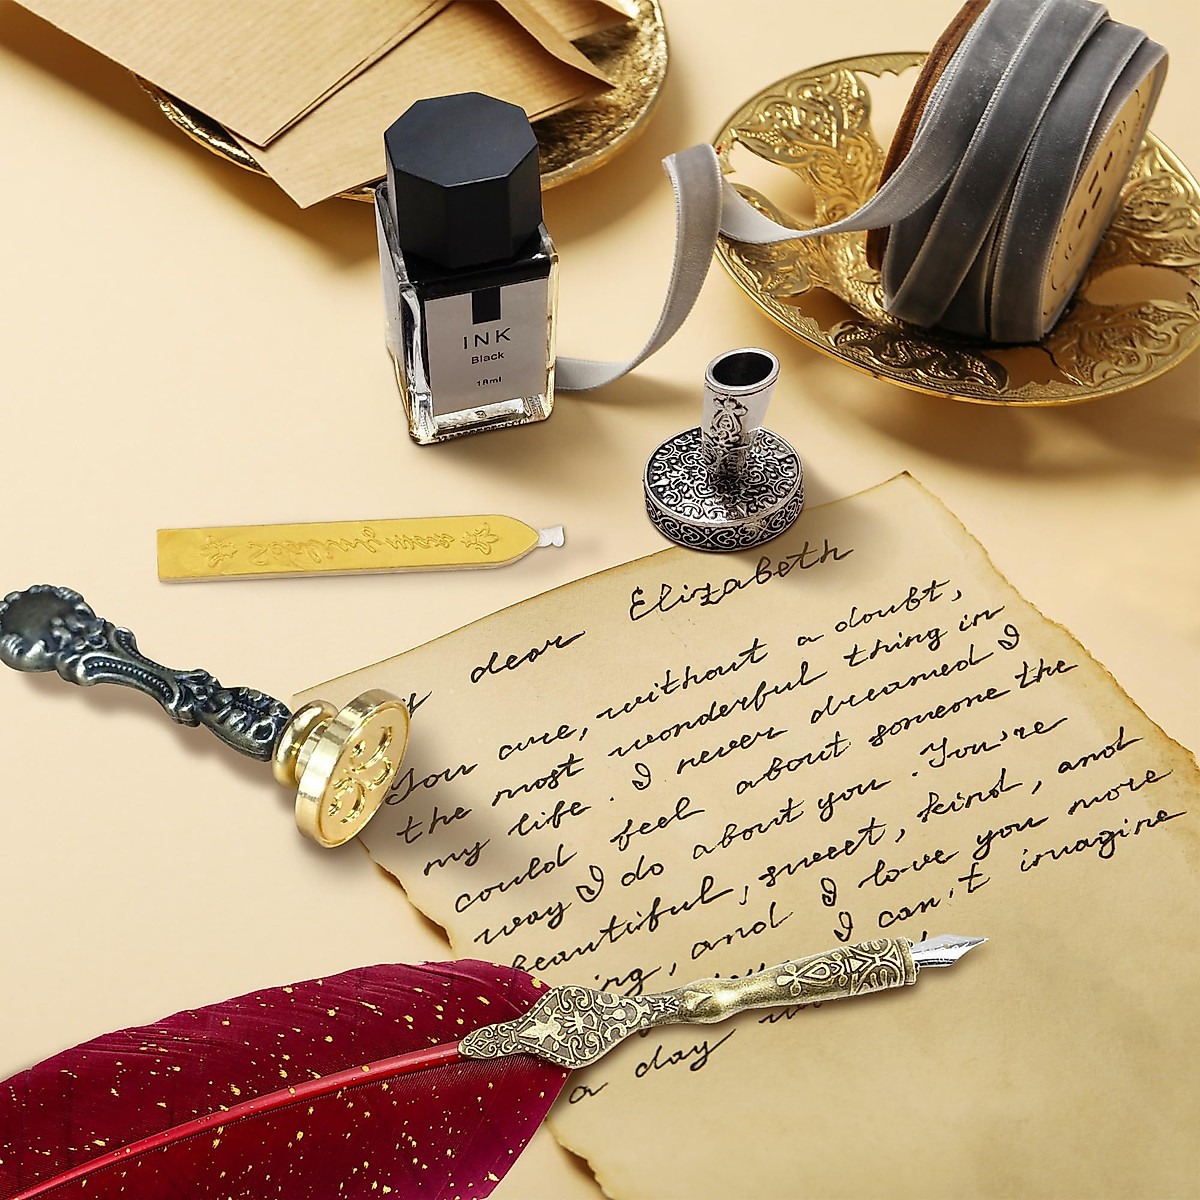 INK
Black
18ml
dear Elizabeth
You are, without a doubt,
the most wonderful thing in
my life. I never dreamed I
could feel about someone the
way I do about you. You're
beautiful, sweet, kind, and
and I love you more
I can't imagine
a day